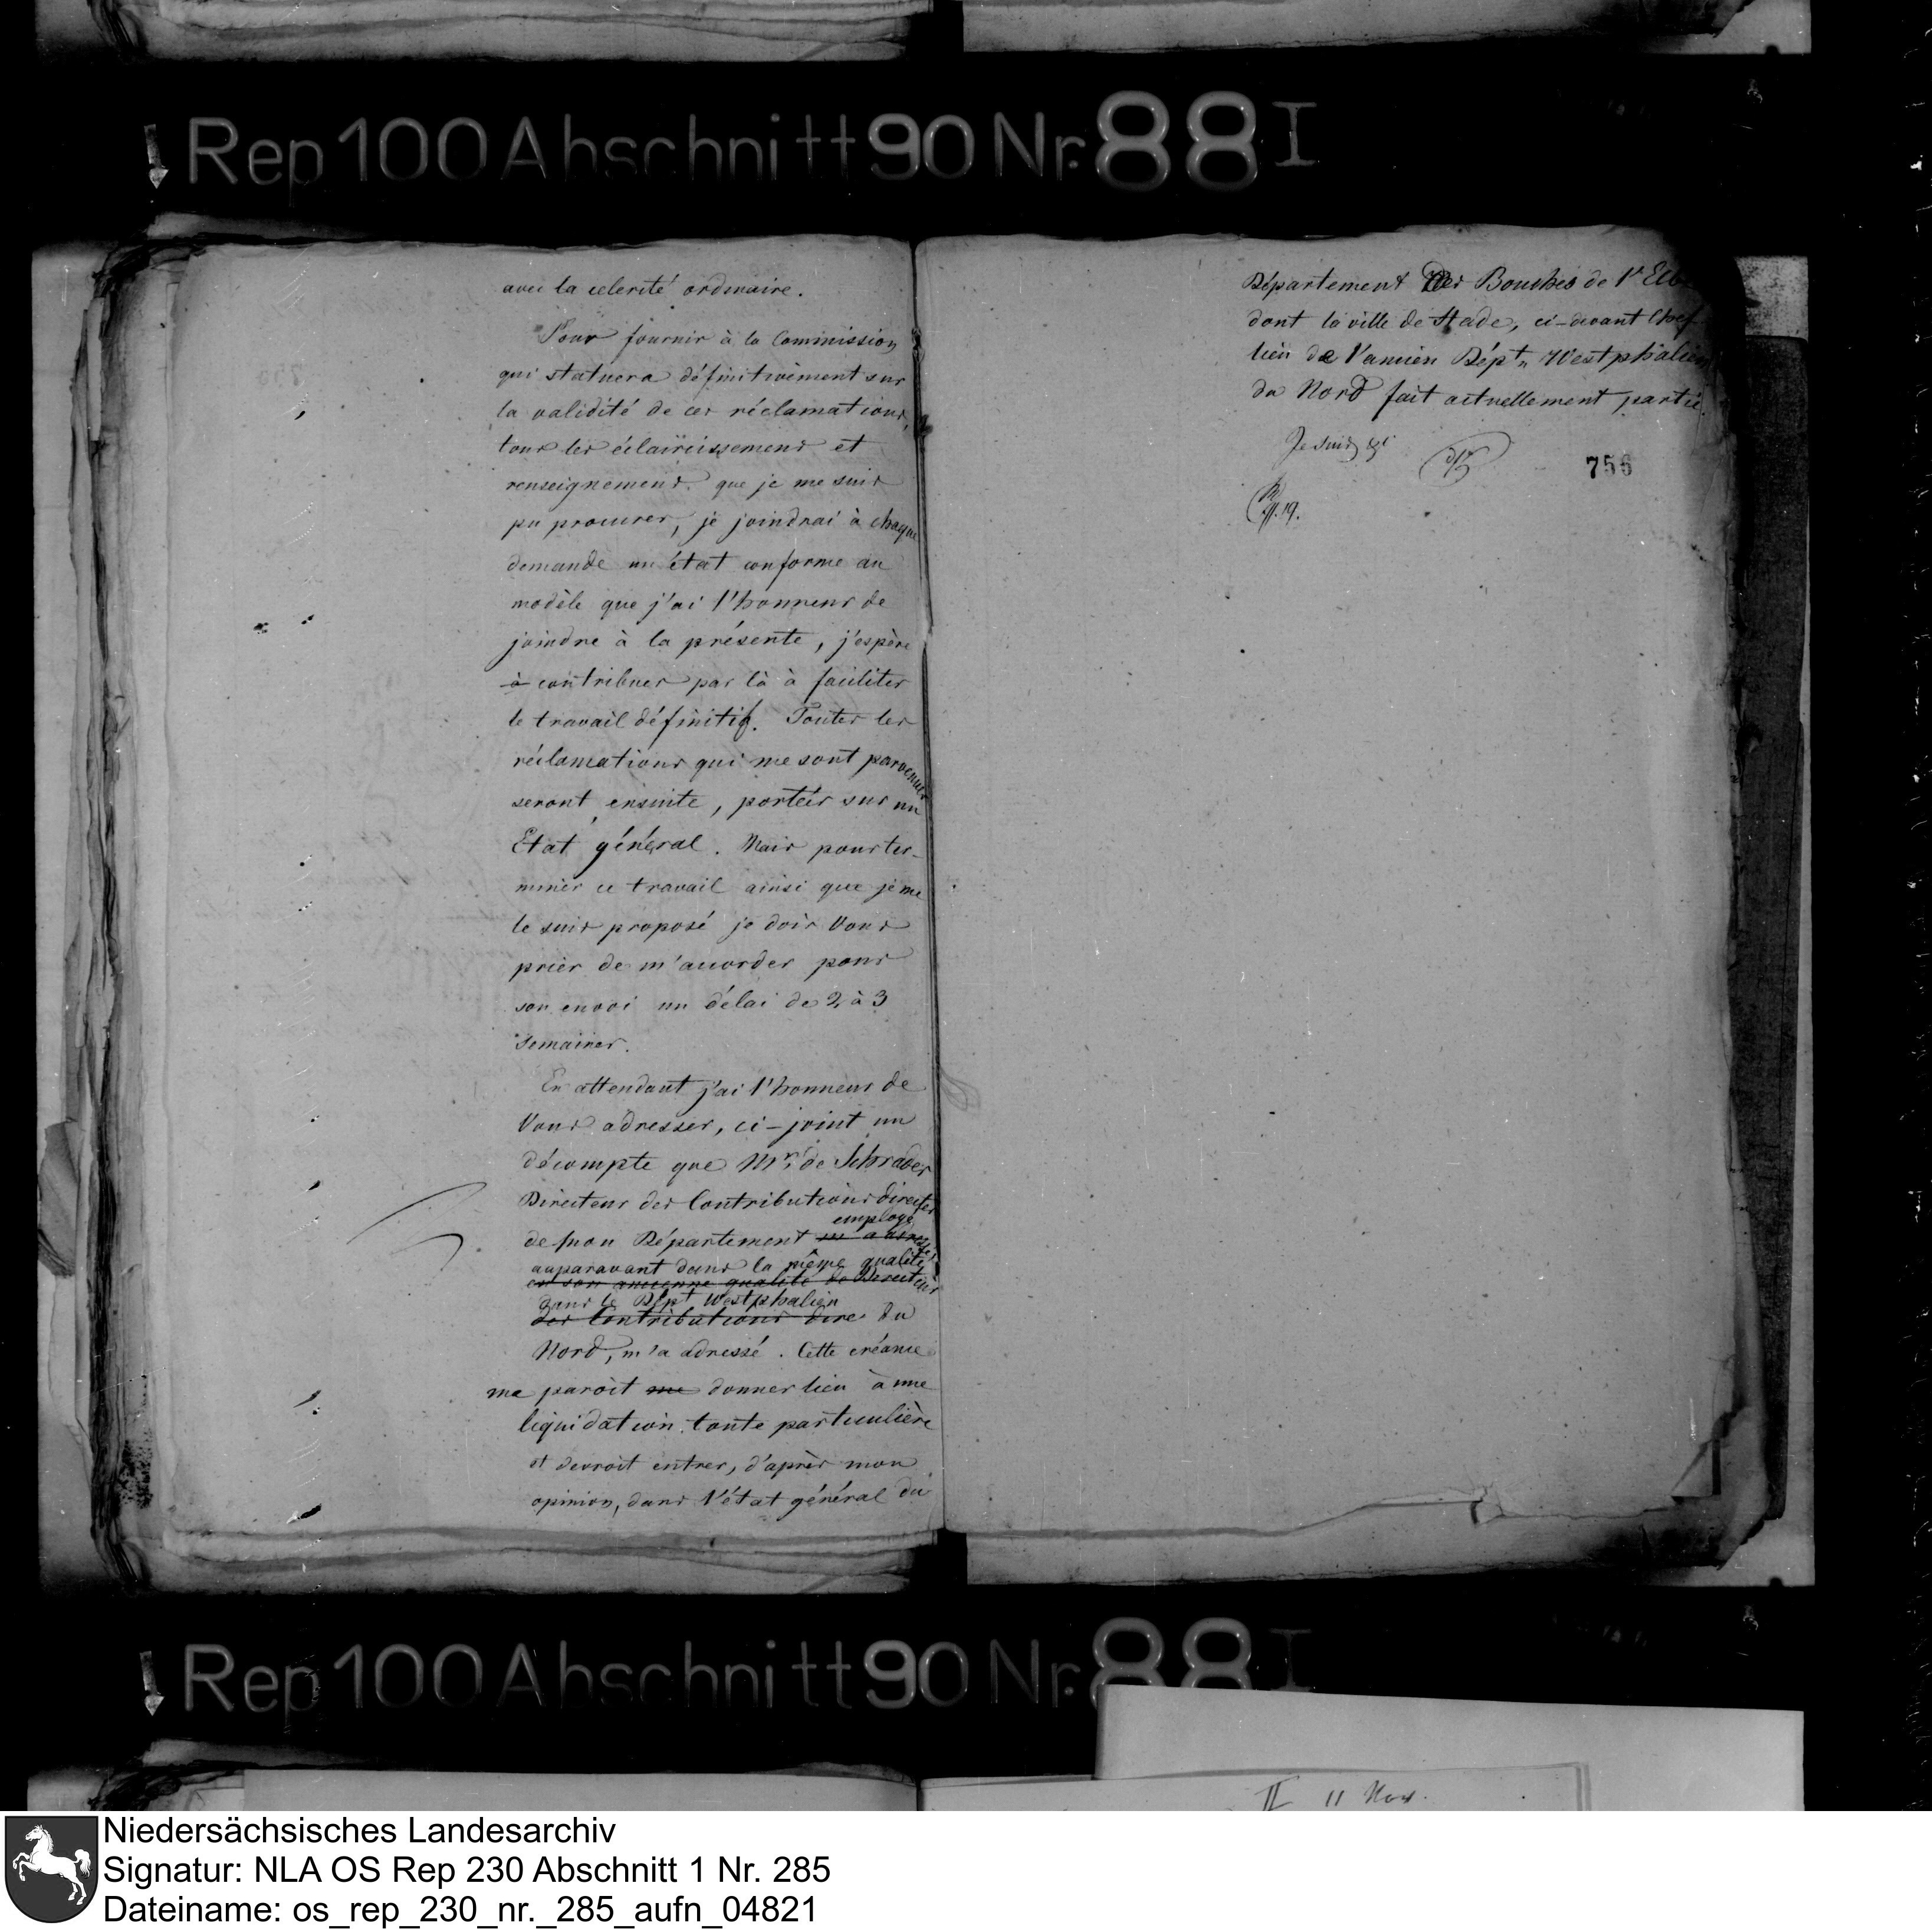 Rep 100 Abschnitt 90 Nr. 88 I
avec la celerité ordinaire.
Pour fournir à la Commission
qui statuera définitivement sur
la validité de ces réclamations,
tous les éclaircissemens et
renseignemens que je me suis
pu procurer, je joindrai à chaque
demande un état conforme au
modèle que j'ai l'honneur de
joindre à la présente, j'espère
à contribuer par là à faciliter
le travail définitif. Toutes les
réclamations qui me sont parvenues
seront ensuite, portées sur un
Etat général. Mais pour ter-
miner ce travail ainsi que je me
le suis proposé je dois Vous
prier de m'accorder pour
son envoi un délai de 2 à 3
semaines.
En attendant j'ai l'honneur de
Vous adresser, ci-joint un
décompte que Mr. de Schrader
Directeur des Contributions directes
employé
de mon Département m'a adressé
auparavant dans la même qualité
en son ancienne qualité de Directeur
dans le Dépt Westphalien
des Contributions dire du
Nord, m'a adressé. Cette créance
me paroit me donner lieu à une
liquidation toute particulière
et devroit entrer, d'après mon
opinion, dans l'état général du
Département des Bouches de l'Elbe
dont la ville de Stade, ci-devant Chef
lieu de l'ancien Dépt. Westphalien
du Nord fait actuellement partie.
Je suis
756
19.
Rep 100 Abschnitt 90 Nr. 88 I
II 11 Nov.
Niedersächsisches Landesarchiv
Signatur: NLA OS Rep 230 Abschnitt 1 Nr. 285
Dateiname: os_rep_230_nr._285_aufn_04821